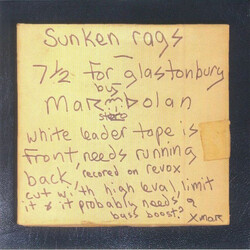 Sunken rags
7 1/2 for glastonbury
by
Marc Bolan
white leader tape is
front needs running
back, recored on revox
cut with high leval, limit
it & it probably needs a
bass boost? X marc